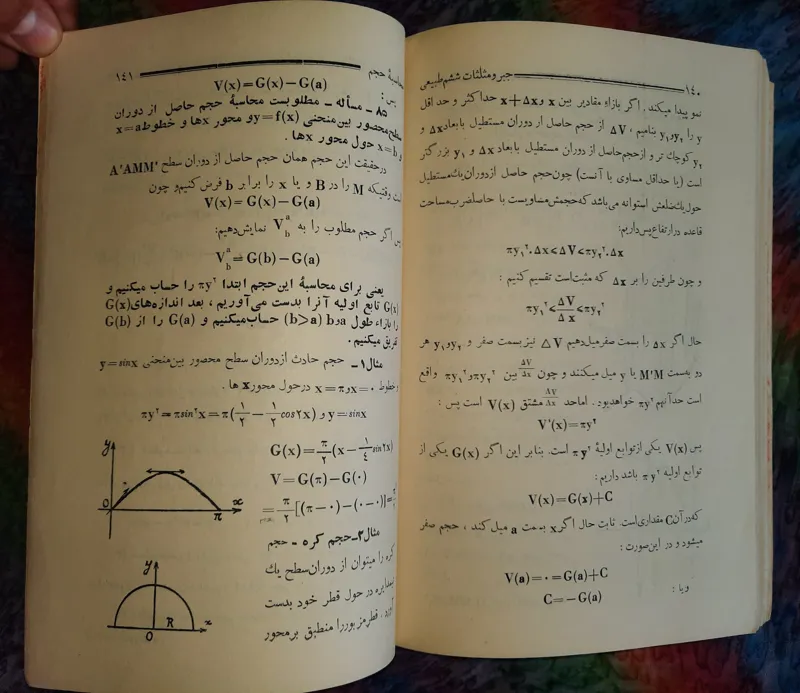 ۱۴۰ جبر و مثلثات ششم طبیعی
نمو پیدا میکند. اگر بازاء مقادیر بین x و x+Δx حداکثر و حداقل
y را y₂ و y₁ بنامیم، ΔV از حجم حاصل از دوران مستطیل با بعاد Δx و
y₂ کوچك تر و از حجم حاصل از دوران مستطیل با بعاد Δx و y₁ بزرگتر
است (یا حداقل مساوی با آنست) چون حجم حاصل از دوران یك مستطیل
حول یك ضلعش استوانه می‌باشد که حجمش مساویست با حاصلضرب مساحت
قاعده در ارتفاع پس داریم:
πy₁²·Δx<ΔV<πy₂²·Δx
و چون طرفین را بر Δx که مثبت است تقسیم کنیم :
πy₁²<ΔV/Δx<πy₂²
حال اگر Δx را بسمت صفر میل دهیم ΔV نیز بسمت صفر و y₂ و y₁ هر
دو بسمت M'M یا y میل میکنند و چون ΔV/Δx بین πy₂² و πy₁² واقع
است حد آنهم πy² خواهد بود. اما حد ΔV/Δx مشتق V(x) است پس :
V'(x)=πy²
پس V(x) یکی از توابع اولیهٔ πy² است. بنابر این اگر G(x) یکی از
توابع اولیه πy² باشد داریم:
V(x)=G(x)+C
که در آن C مقداری است. ثابت حال اگر x بسمت a میل کند ، حجم صفر
میشود و در این صورت :
V(a)=۰=G(a)+C
ویا :
C=−G(a)
محاسبهٔ حجم ۱۴۱
پس :
V(x)=G(x)−G(a)
۸۵ـ مسأله ـ مطلوبست محاسبهٔ حجم حاصل از دوران
سطح محصور بین منحنی y=f(x) و محور xها و خطوط x=a
و x=b حول محور xها .
در حقیقت این حجم همان حجم حاصل از دوران سطح A'AMM'
است وقتیکه M را در B و یا x را برابر b فرض کنیم و چون
V(x)=G(x)−G(a)
پس اگر حجم مطلوب را به V_b^a نمایش دهیم:
V_b^a=G(b)−G(a)
یعنی برای محاسبهٔ این حجم ابتدا πy² را حساب میکنیم و
G(x) تابع اولیه آنرا بدست می‌آوریم ، بعد اندازه‌های G(x)
را بازاء طول a و b (b>a) حساب میکنیم و G(a) را از G(b)
تفریق میکنیم .
مثال۱ـ حجم حادث از دوران سطح محصور بین منحنی y=sinx
و خطوط x=۰ و x=π در حول محور x ها .
y=sinx و πy²=πsin²x=π(۱/۲−۱/۲cos۲x)
G(x)=π/۲(x−۱/۴sin۲x)
V=G(π)−G(۰)
=π/۲[(π−۰)−(۰−۰)]=
y
O
π
x
مثال۲ـ حجم کره ـ حجم
کره را میتوان از دوران سطح یك
نیمدایره در حول قطر خود بدست
آورد . قطر مزبور را منطبق بر محور
y
O
R
x